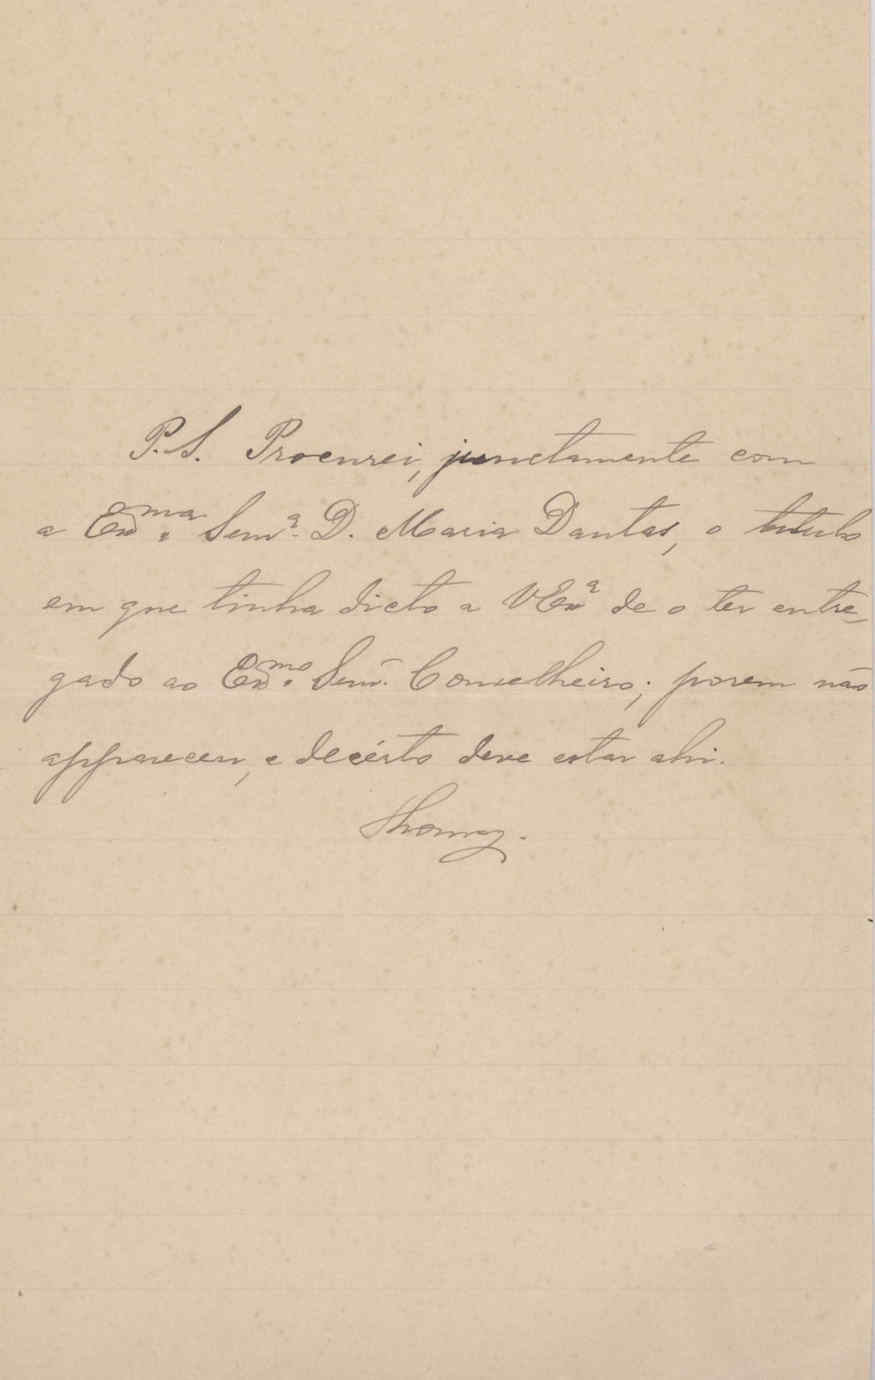 P.S. Procurei, junctamente com
a Exma. Senra. D. Maria Dantas, o titulo
em que tinha dicto a VExa de o ter entre-
gado ao Exmo. Senr. Conselheiro; porem não
appareceu, e decérto deve estar ahi.
Thomaz.